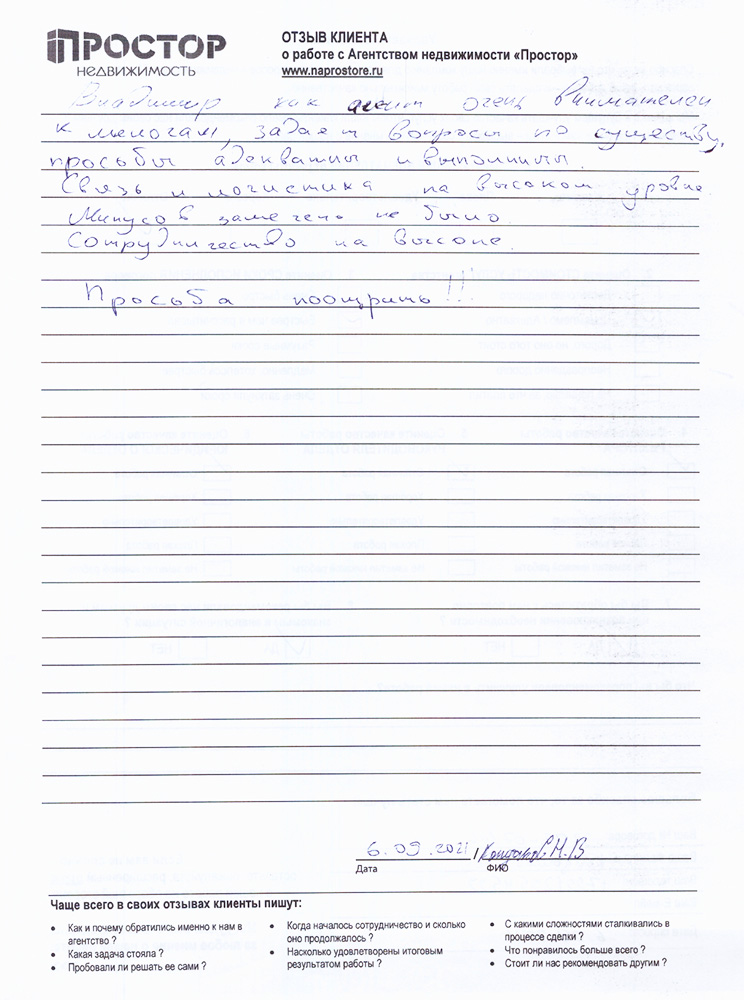 ПРОСТОР
НЕДВИЖИМОСТЬ
ОТЗЫВ КЛИЕНТА
о работе с Агентством недвижимости «Простор»
www.naprostore.ru
Владимир как агент очень внимателен
к мелочам, задает вопросы по существу,
просьбы адекватны и выполнимы.
Связь и логистика на высоком уровне.
Минусов замечено не было.
Сотрудничество на высоте.
Просьба поощрить!!!
6.09.2021 /
Дата
ФИО
Чаще всего в своих отзывах клиенты пишут:
• Как и почему обратились именно к нам в
агентство ?
• Какая задача стояла ?
• Пробовали ли решать ее сами ?
• Когда началось сотрудничество и сколько
оно продолжалось ?
• Насколько удовлетворены итоговым
результатом работы ?
• С какими сложностями сталкивались в
процессе сделки ?
• Что понравилось больше всего ?
• Стоит ли нас рекомендовать другим ?